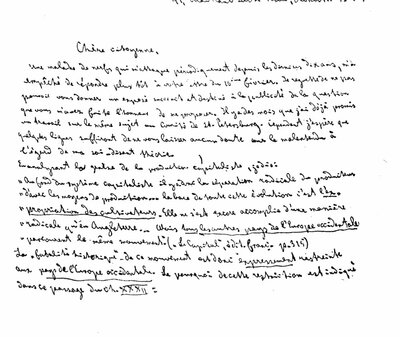 Chère citoyenne,
une maladie de nerfs qui m'attaque périodiquement depuis les derniers dix ans, m'a
empêché de répondre plus tôt à votre lettre du 16ème février. Je regrette de ne pas
pouvoir vous donner un exposé succinct et destiné à la publicité de la question
que vous m'avez faite l'honneur de me proposer. Il y a des mois que j'ai déjà promis
un travail sur le même sujet au Comité de St. Pétersbourg. Cependant j'espère que
quelques lignes suffiront de ne vous laisser aucun doute sur le malentendu à
l'égard de ma soi-disant théorie.
En analysant la genèse de la production capitaliste, je dis:
„Au fond du système capitaliste il y a donc la séparation radicale du producteur
„d'avec les moyens de production ... la base de toute cette évolution c'est l'ex-
„propriation des cultivateurs. Elle ne s'est encore accomplie d'une manière
„radicale qu'en Angleterre... Mais tous les autres pays de l'Europe occidentale
„parcourent le même mouvement" („Le Capital", édit. franç. p. 315)
La „fatalité historique" de ce mouvement est donc expressément restreinte
aux pays de l'Europe occidentale. Le pourquoi de cette restriction est indiqué
dans ce passage du ch. XXXII: